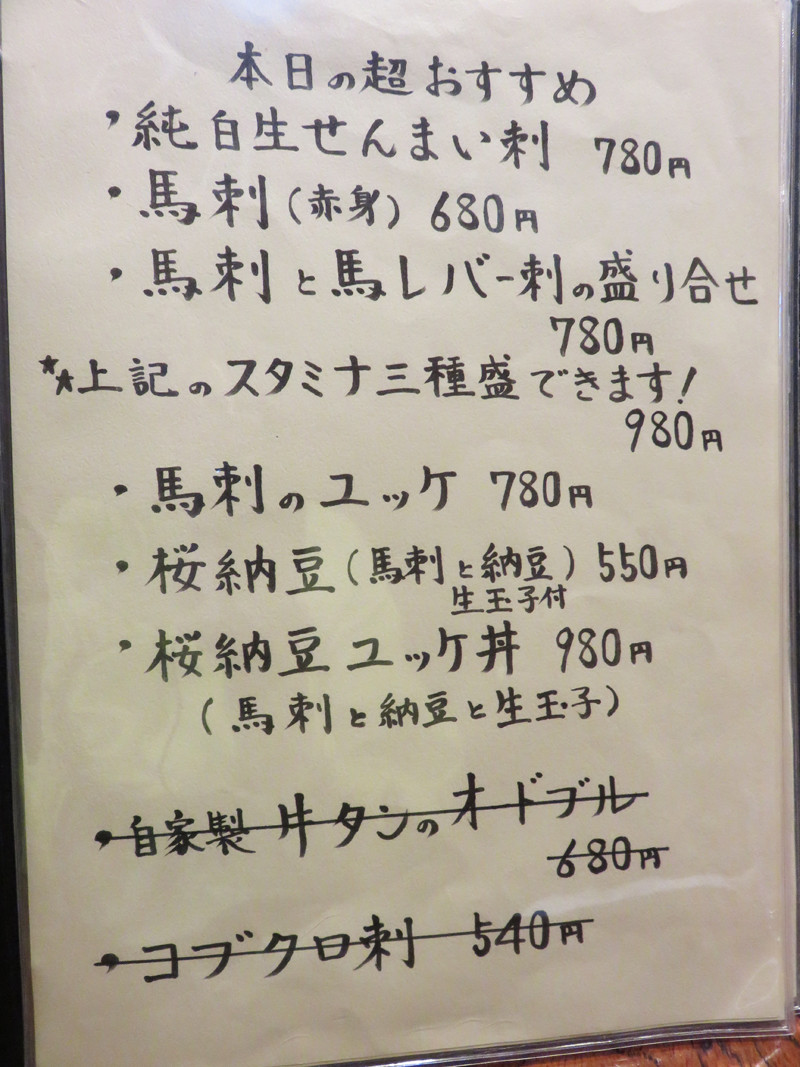 本日の超おすすめ
・純白生せんまい刺 780円
・馬刺(赤身) 680円
・馬刺と馬レバー刺の盛り合せ
780円
★★上記のスタミナ三種盛できます!
980円
・馬刺のユッケ 780円
・桜納豆(馬刺と納豆) 550円
生玉子付
・桜納豆ユッケ丼 980円
(馬刺と納豆と生玉子)
・自家製牛タンのオドブル
680円
・コブクロ刺 540円